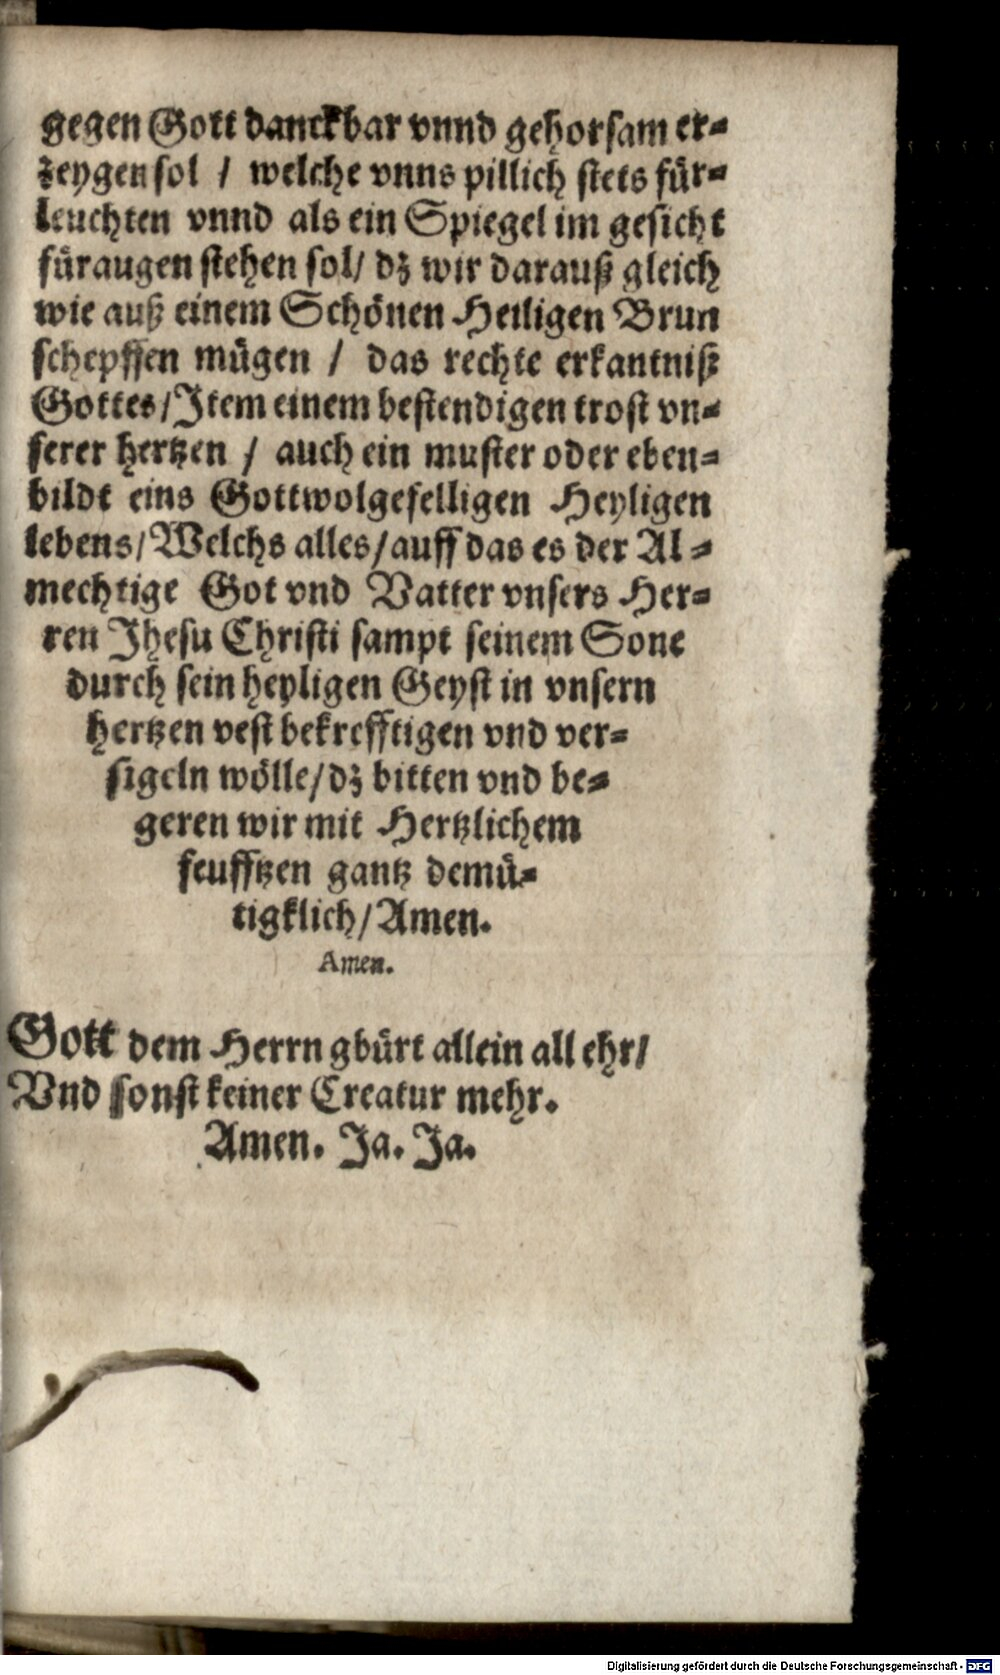 gegen Gott danckbar vnnd gehorsam er⸗
zeygen sol / welche vnns pillich stets für⸗
leuchten vnnd als ein Spiegel im gesicht
für augen stehen sol/ dz wir darauß gleich
wie auß einem Schönen Heiligen Brun
schepffen mügen / das rechte erkantniß
Gottes/ Item einem bestendigen trost vn⸗
serer hertzen / auch ein muster oder eben⸗
bildt eins Gottwolgefelligen Heyligen
lebens/ Welchs alles/ auff das es der Al⸗
mechtige Got vnd Vatter vnsers Her⸗
ren Jhesu Christi sampt seinem Sone
durch sein heyligen Geyst in vnsern
hertzen vest bekrefftigen vnd ver⸗
sigeln wölle/ dz bitten vnd be⸗
geren wir mit Hertzlichem
seufftzen gantz demü⸗
tigklich/ Amen.
Amen.
Gott dem Herrn gbürt allein all ehr/
Vnd sonst keiner Creatur mehr.
Amen. Ja. Ja.
Digitalisierung gefördert durch die Deutsche Forschungsgemeinschaft - DFG